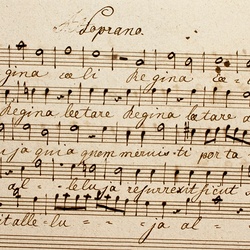 Soprano
gina cœli Regina cœ-
Regina lætare Regina lætare
ja quia quem meruis-ti porta
al- le lu ja resurrexit sicut
it alle-lu - - - ja al-